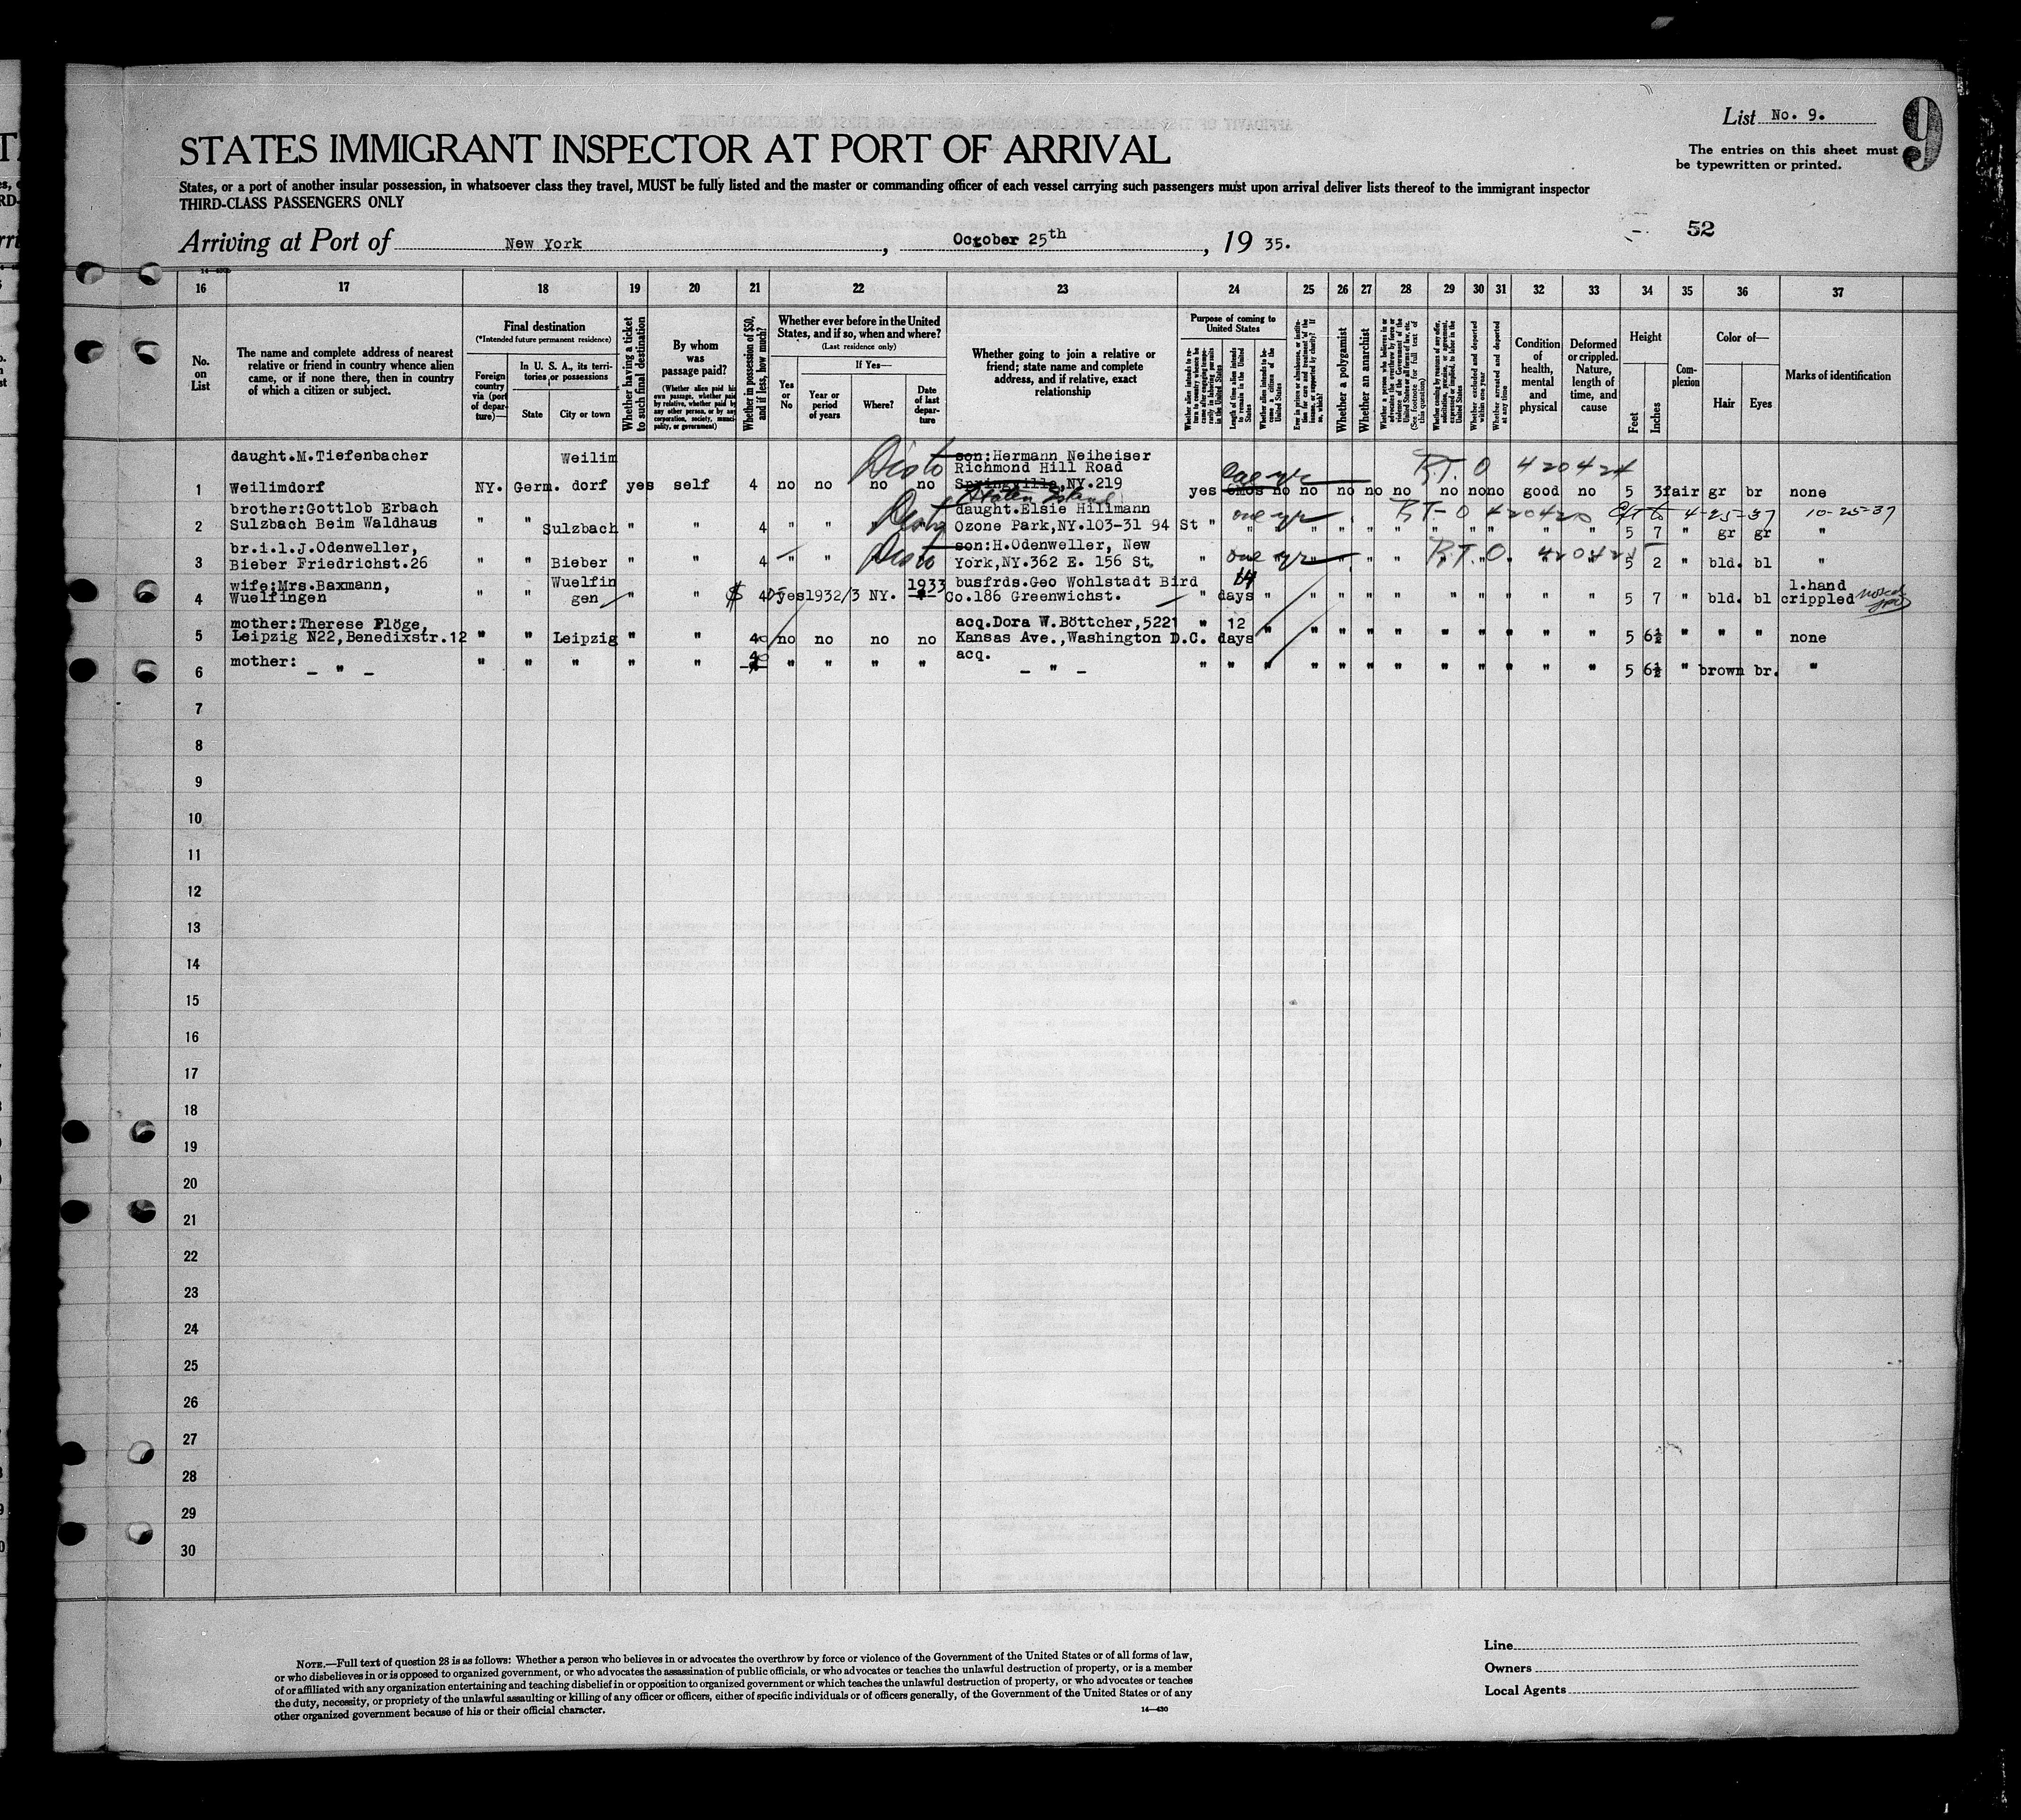 List No. 9.
9
The entries on this sheet must
be typewritten or printed.
STATES IMMIGRANT INSPECTOR AT PORT OF ARRIVAL
States, or a port of another insular possession, in whatsoever class they travel, MUST be fully listed and the master or commanding officer of each vessel carrying such passengers must upon arrival deliver lists thereof to the immigrant inspector
THIRD-CLASS PASSENGERS ONLY
52
Arriving at Port of New York, October 25th, 19 35.
16 17 18 19 20 21 22 23 24 25 26 27 28 29 30 31 32 33 34 35 36 37
No. on List
The name and complete address of nearest
relative or friend in country whence alien
came, or if none there, then in country
of which a citizen or subject.
Final destination
(*Intended future permanent residence)
Foreign country via (port of departure)—
In U. S. A., its territories, or possessions
State
City or town
Whether having a ticket to such final destination
By whom was passage paid?
(Whether alien paid his own passage, whether paid by relative, whether paid by any other person, or by any corporation, society, municipality, or government)
Whether in possession of $50, and if less, how much?
Whether ever before in the United
States, and if so, when and where?
(Last residence only)
Yes or No
If Yes—
Year or period of years
Where?
Date of last departure
Whether going to join a relative or
friend; state name and complete
address, and if relative, exact
relationship
Purpose of coming to
United States
Length of time alien intends to remain in the United States
Whether alien intends to become a citizen of the United States
Whether a polygamist
Whether an anarchist
(See footnote for full text of this question)
Whether excluded and deported within one year
Whether arrested and deported at any time
Condition of health, mental and physical
Deformed or crippled. Nature, length of time, and cause
Height
Feet
Inches
Complexion
Color of—
Hair
Eyes
Marks of identification
daught.M.Tiefenbacher Weilim son:Hermann Neiheiser
Richmond Hill Road
R.T.O 420424
one yr
1 Weilimdorf NY. Germ. dorf yes self 4 no no no no Springville,NY.219 yes 6mos no no no no no no no no good no 5 3 fair gr br none
Staten Island
brother:Gottlob Erbach daught.Elsie Hillmann
2 Sulzbach Beim Waldhaus " " Sulzbach " " 4 " " " Ozone Park,NY.103-31 94 St " one yr 4-25-37 10-25-37
5 7 " gr gr "
br.i.l.J.Odenweller, son:H.Odenweller, New
3 Bieber Friedrichst.26 " " Bieber " " 4 " " York,NY.362 E. 156 St. " one yr R.T.O. 5 2 " bld. bl "
wife:Mrs.Baxmann, Wuelfin 1933 busfrds.Geo Wohlstadt Bird 14 l.hand
4 Wuelfingen " " gen " " $ 40 yes 1932/3 NY. Co.186 Greenwichst. " days " " " " " " " " " " " 5 7 " bld. bl crippled
mother:Therese Plöge, acq.Dora W.Böttcher,5221 " 12
5 Leipzig N22,Benedixstr.12 " " Leipzig " " 40 no no no no Kansas Ave.,Washington D.C. days " " " " " " " " " " 5 6½ " " " none
mother: acq.
6 – " – " " " " " 40 " " " " – " – " " " " " " " " " " " " 5 6½ " brown br. "
7
8
9
10
11
12
13
14
15
16
17
18
19
20
21
22
23
24
25
26
27
28
29
30
NOTE.—Full text of question 28 is as follows: Whether a person who believes in or advocates the overthrow by force or violence of the Government of the United States or of all forms of law,
or who disbelieves in or is opposed to organized government, or who advocates the assassination of public officials, or who advocates or teaches the unlawful destruction of property, or is a member
of or affiliated with any organization entertaining and teaching disbelief in or opposition to organized government or which teaches the unlawful destruction of property, or who advocates or teaches
the duty, necessity, or propriety of the unlawful assaulting or killing of any officer or officers, either of specific individuals or of officers generally, of the Government of the United States or of any
other organized government because of his or their official character.
14—430
Line
Owners
Local Agents